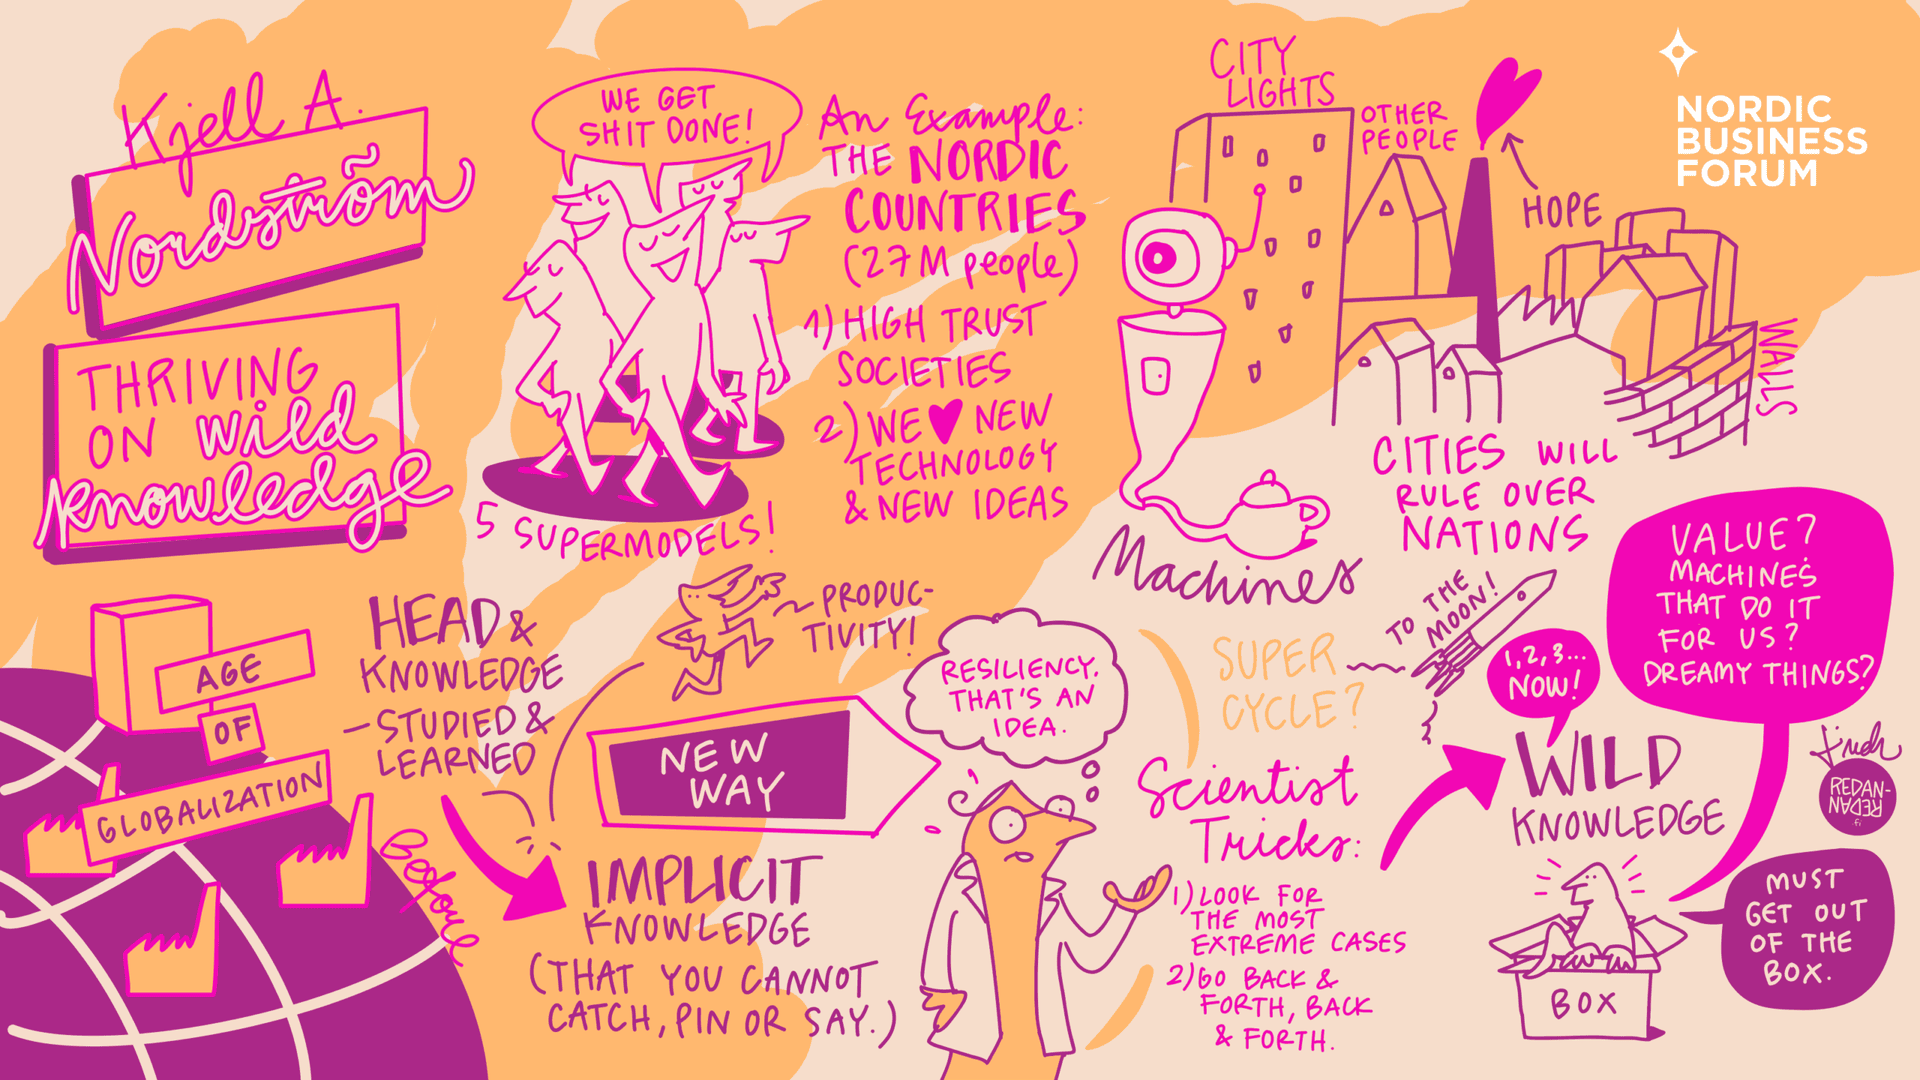 Kjell A.
Nordström
THRIVING
ON wild
knowledge
WE GET
SHIT DONE!
5 SUPERMODELS!
An Example:
THE NORDIC
COUNTRIES
(27M people)
1) HIGH TRUST
SOCIETIES
2) WE ♥ NEW
TECHNOLOGY
& NEW IDEAS
CITY
LIGHTS
OTHER
PEOPLE
HOPE
WALLS
NORDIC
BUSINESS
FORUM
Machines
CITIES WILL
RULE OVER
NATIONS
AGE
OF
GLOBALIZATION
Before
HEAD &
KNOWLEDGE
– STUDIED &
LEARNED
~ PRODUC-
TIVITY!
NEW
WAY
IMPLICIT
KNOWLEDGE
(THAT YOU CANNOT
CATCH, PIN OR SAY.)
RESILIENCY.
THAT'S AN
IDEA.
SUPER
CYCLE?
TO THE
MOON!
Scientist
Tricks:
1) LOOK FOR
THE MOST
EXTREME CASES
2) GO BACK &
FORTH, BACK
& FORTH.
1, 2, 3...
NOW!
WILD
KNOWLEDGE
BOX
VALUE?
MACHINES
THAT DO IT
FOR US?
DREAMY THINGS?
MUST
GET OUT
OF THE
BOX.
REDAN-
REDAN
.fi